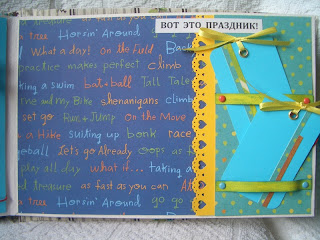 a tree Horsin' Around
ВОТ ЭТО ПРАЗДНИК!
What a day! on the Field Back
practice makes perfect climb
taking a swim bat & ball Tall Tale
me and my Bike shenanigans climb
set go Run & Jump On the Move
a Hike suiting up bonk race
baseball Let's go Already oops as f
play all day what if... taking a
treasure as fast as you can
a tree Horsin' Around go go